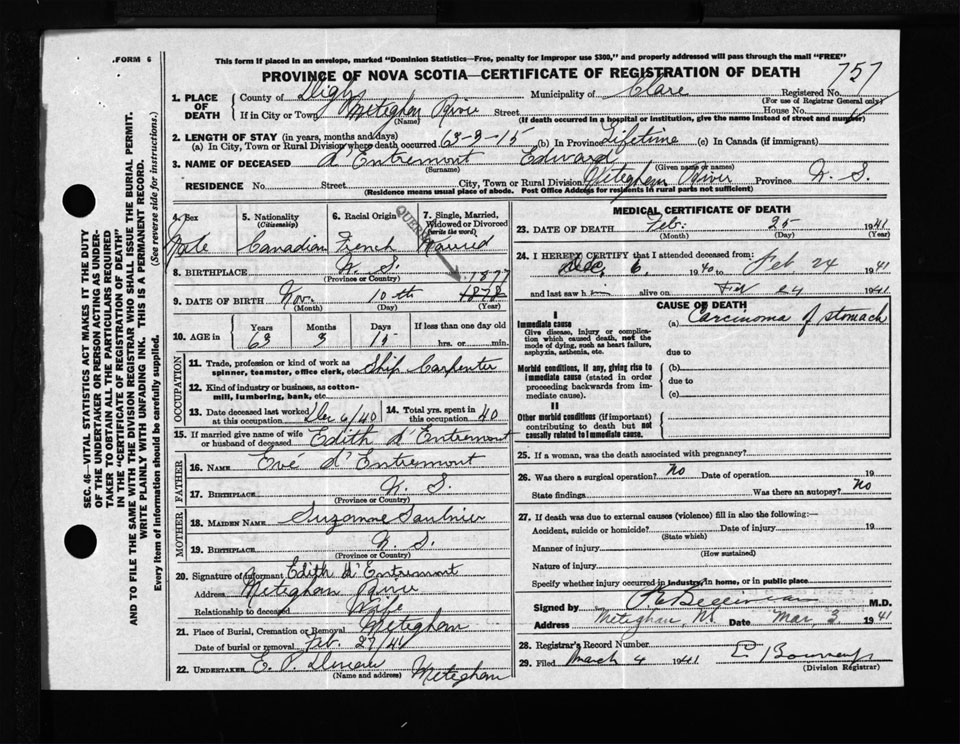 FORM 6
This form if placed in an envelope, marked "Dominion Statistics—Free, penalty for improper use $300," and properly addressed will pass through the mail "FREE"
PROVINCE OF NOVA SCOTIA—CERTIFICATE OF REGISTRATION OF DEATH
757
1. PLACE OF DEATH
County of Digby Municipality of Clare Registered No.
(For use of Registrar General only)
If in City or Town Meteghan River Street House No.
(Name) (If death occurred in a hospital or institution, give the name instead of street and number)
2. LENGTH OF STAY (in years, months and days)
(a) In City, Town or Rural Division where death occurred 63-3-15 (b) In Province Lifetime (c) In Canada (if immigrant)
3. NAME OF DECEASED d'Entremont Edward
(Surname) (Given name or names)
RESIDENCE No. Street City, Town or Rural Division Meteghan River Province N. S.
(Residence means usual place of abode. Post Office Address for residents in rural parts not sufficient)
SEC. 46—VITAL STATISTICS ACT MAKES IT THE DUTY
OF THE UNDERTAKER OR PERSON ACTING AS UNDER-
TAKER TO OBTAIN ALL THE PARTICULARS REQUIRED
IN THE "CERTIFICATE OF REGISTRATION OF DEATH"
AND TO FILE THE SAME WITH THE DIVISION REGISTRAR WHO SHALL ISSUE THE BURIAL PERMIT.
WRITE PLAINLY WITH UNFADING INK. THIS IS A PERMANENT RECORD.
Every item of Information should be carefully supplied. (See reverse side for instructions.)
4. Sex
Male
5. Nationality
(Citizenship)
Canadian
6. Racial Origin
French
7. Single, Married,
Widowed or Divorced
(write the word)
Married
8. BIRTHPLACE N. S.
(Province or Country)
1877
9. DATE OF BIRTH Nov. 10th 1878
(Month) (Day) (Year)
10. AGE in Years Months Days If less than one day old
63 3 15 hrs. or min.
OCCUPATION
11. Trade, profession or kind of work as
spinner, teamster, office clerk, etc. Ship Carpenter
12. Kind of industry or business, as cotton-
mill, lumbering, bank, etc.
13. Date deceased last worked
at this occupation Dec 6/40
14. Total yrs. spent in
this occupation 40
15. If married give name of wife
or husband of deceased Edith d'Entremont
FATHER
16. NAME Evé d'Entremont
17. BIRTHPLACE N. S.
(Province or Country)
MOTHER
18. MAIDEN NAME Suzanne Saulnier
19. BIRTHPLACE N. S.
(Province or Country)
20. Signature of informant Edith d'Entremont
Address Meteghan River
Relationship to deceased Wife
21. Place of Burial, Cremation or Removal Meteghan
Date of burial or removal Feb. 27/41
22. UNDERTAKER E. P. Meteghan
(Name and address)
MEDICAL CERTIFICATE OF DEATH
23. DATE OF DEATH Feb. 25 1941
(Month) (Day) (Year)
24. I HEREBY CERTIFY that I attended deceased from:
Dec. 6, 1940 to Feb 24 1941
and last saw him alive on Feb 24 1941
CAUSE OF DEATH
I
Immediate cause
Give disease, injury or complica-
tion which caused death, not the
mode of dying, such as heart failure,
asphyxia, asthenia, etc.
(a) Carcinoma of stomach
due to
Morbid conditions, if any, giving rise to
immediate cause (stated in order
proceeding backwards from im-
mediate cause).
(b)
due to
(c)
II
Other morbid conditions (if important)
contributing to death but not
causally related to immediate cause.
25. If a woman, was the death associated with pregnancy?
26. Was there a surgical operation? No Date of operation 19
State findings Was there an autopsy? No
27. If death was due to external causes (violence) fill in also the following:—
Accident, suicide or homicide? Date of injury 19
(State which)
Manner of injury
(How sustained)
Nature of injury
Specify whether injury occurred in industry, in home, or in public place
Signed by M.D.
Address Meteghan, NS Date Mar. 3 1941
28. Registrar's Record Number
29. Filed March 4 1941
(Division Registrar)